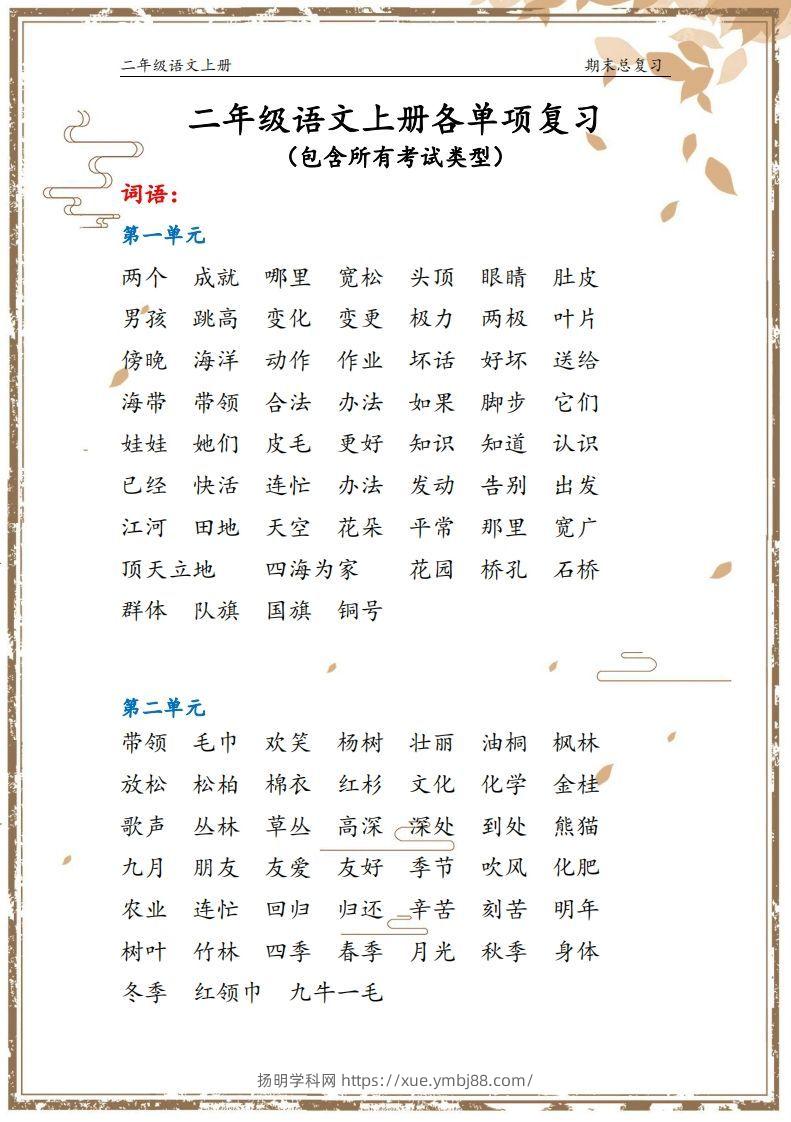 二年级语文上册 期末总复习
二年级语文上册各单项复习
（包含所有考试类型）
词语：
第一单元
两个 成就 哪里 宽松 头顶 眼睛 肚皮
男孩 跳高 变化 变更 极力 两极 叶片
傍晚 海洋 动作 作业 坏话 好坏 送给
海带 带领 合法 办法 如果 脚步 它们
娃娃 她们 皮毛 更好 知识 知道 认识
已经 快活 连忙 办法 发动 告别 出发
江河 田地 天空 花朵 平常 那里 宽广
顶天立地 四海为家 花园 桥孔 石桥
群体 队旗 国旗 铜号
第二单元
带领 毛巾 欢笑 杨树 壮丽 油桐 枫林
放松 松柏 棉衣 红杉 文化 化学 金桂
歌声 丛林 草丛 高深 深处 到处 熊猫
九月 朋友 友爱 友好 季节 吹风 化肥
农业 连忙 回归 归还 辛苦 刻苦 明年
树叶 竹林 四季 春季 月光 秋季 身体
冬季 红领巾 九牛一毛
扬明学科网 https://xue.ymbj88.com/